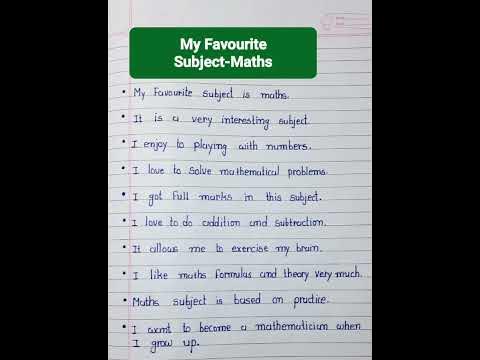 My Favourite
Subject-Maths
My Favourite subject is maths.
It is a very interesting subject.
I enjoy to playing with numbers.
I love to solve mathematical problems.
I got full marks in this subject.
I love to do addition and subtraction.
It allows me to exercise my brain.
I like maths formulas and theory very much.
Maths subject is based on practice.
I want to become a mathematician when
I grow up.